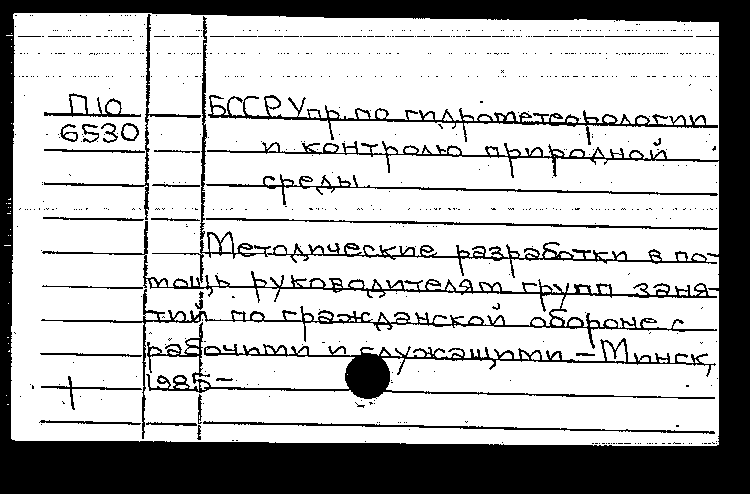 П10
6530
БССР. Упр. по гидрометеорологии
и контролю природной
среды.
Методические разработки в по-
мощь руководителям групп заня-
тий по гражданской обороне с
рабочими и служащими. – Минск,
1985 –